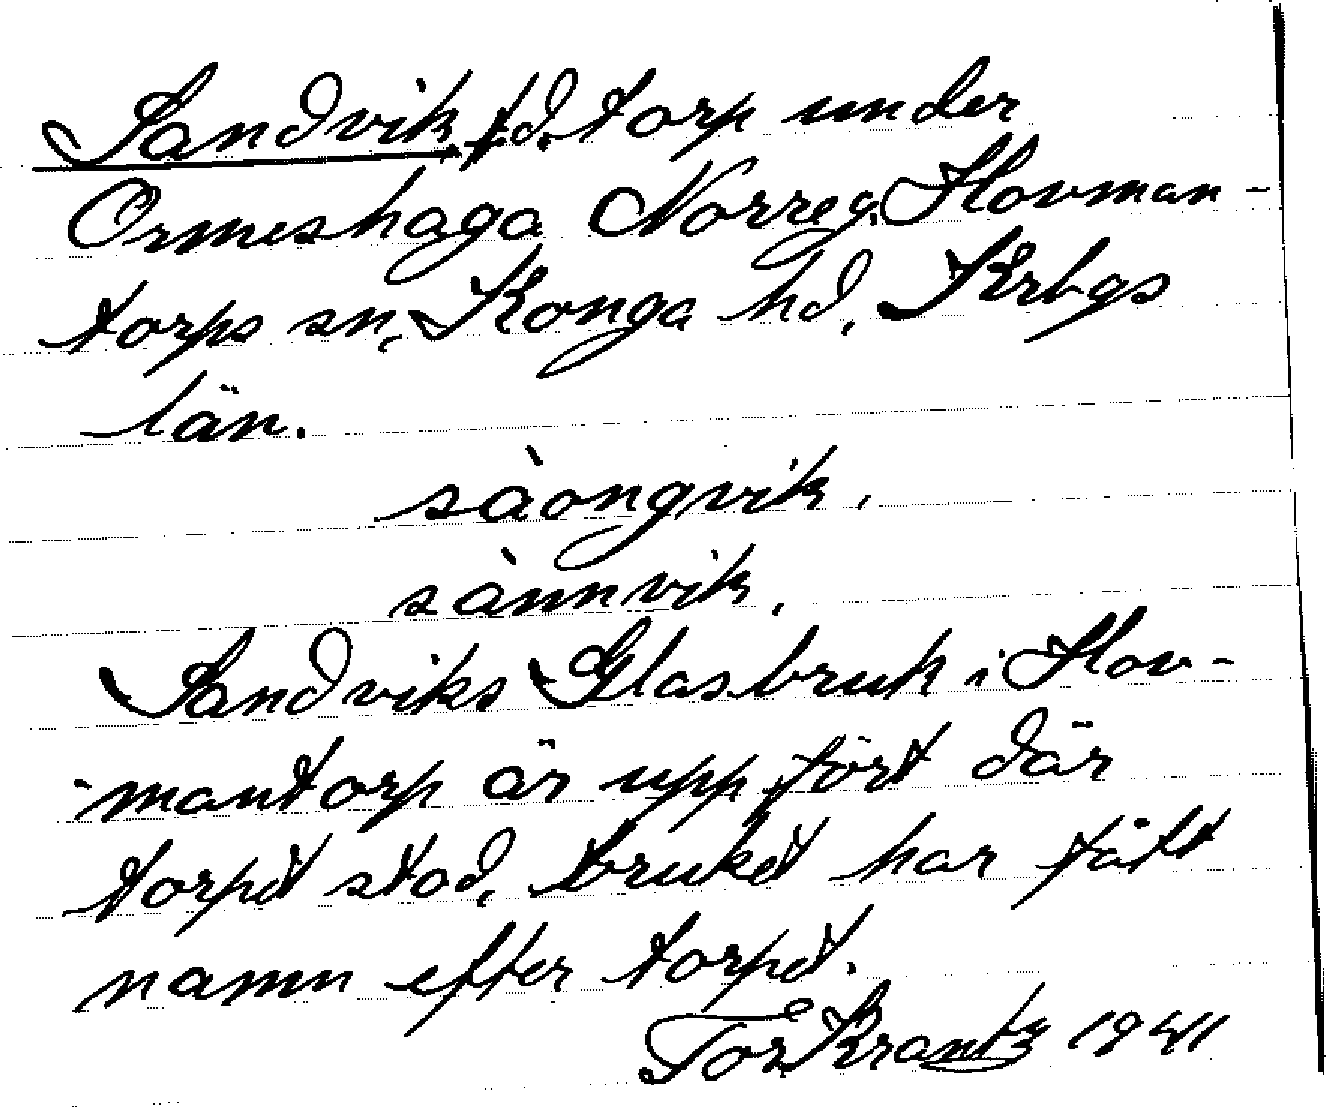 Sandvik, fd. torp under
Ormeshaga Norreg. Hovman-
torps sn, Konga hd, Krbgs
län.
sàongvik.
sànnvik.
Sandviks Glasbruk i Hov-
mantorp är uppfört där
torpet stod, bruket har fått
namn efter torpet.
Tor Krantz 1941